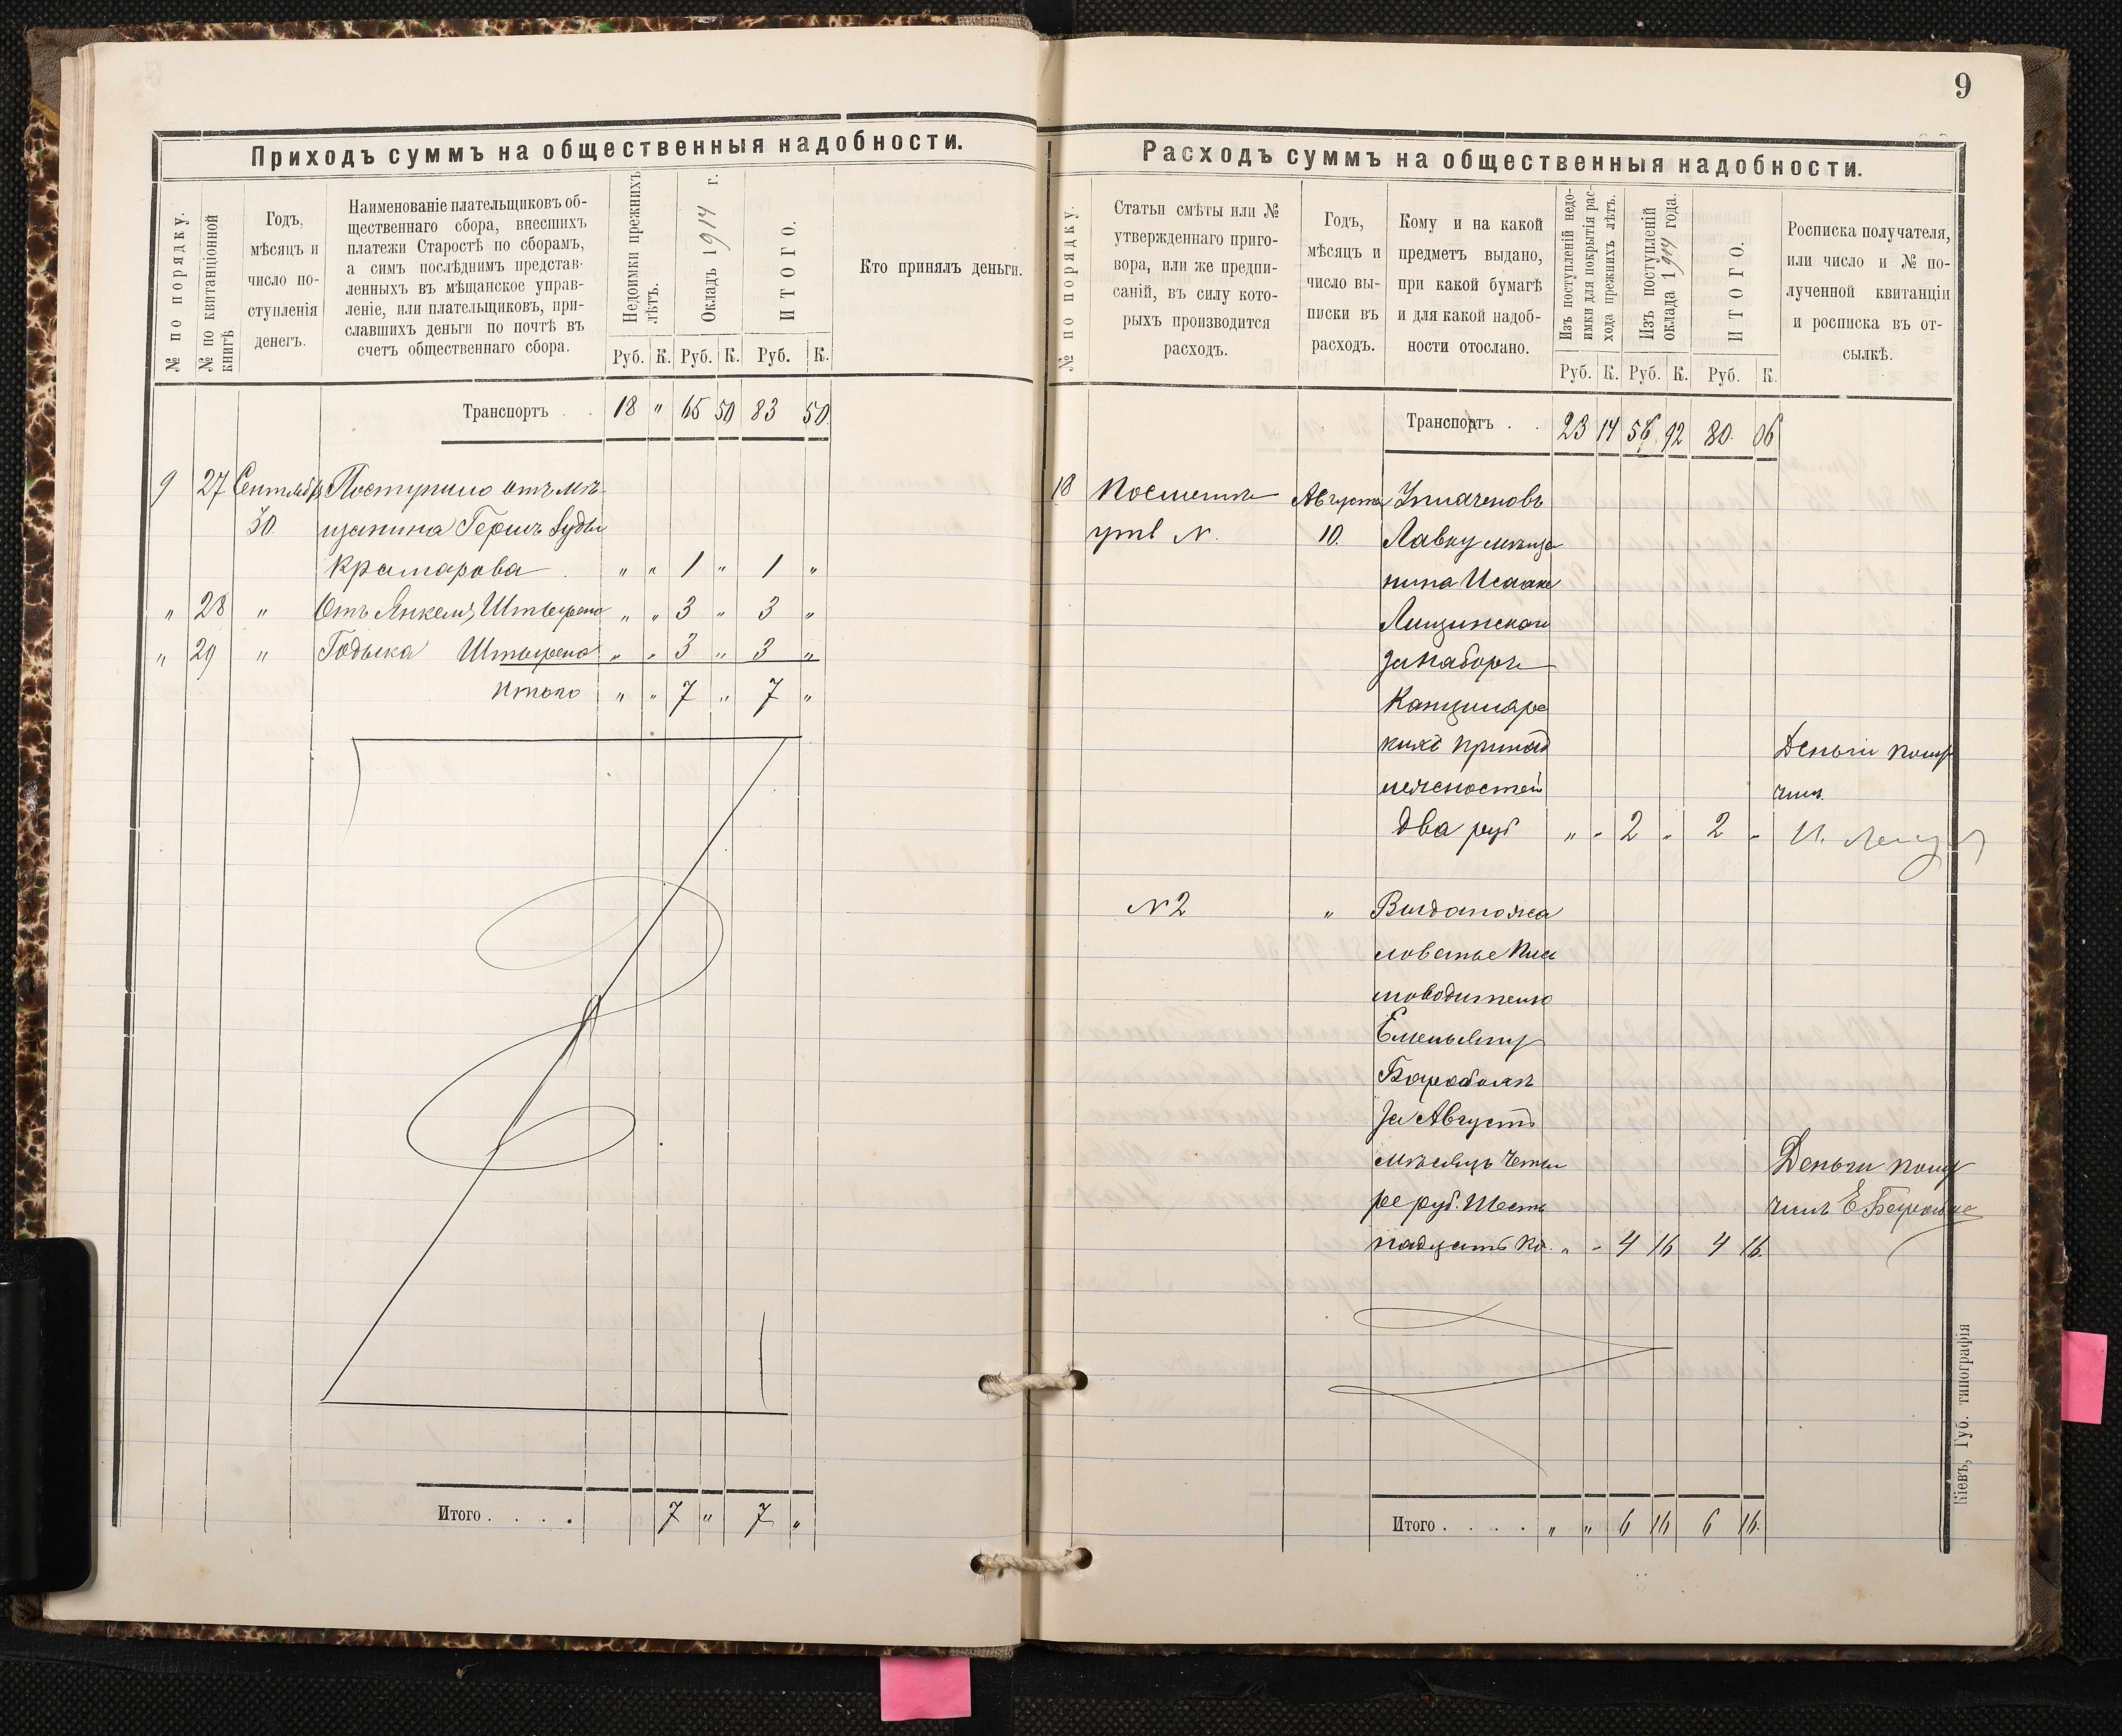 Приходъ суммъ на общественныя надобности.
№ по порядку.
№ по квитанціонной
книгѣ
Годъ,
мѣсяцъ и
число по-
ступленія
денегъ.
Наименованіе плательщиковъ об-
щественнаго сбора, внесшихъ
платежи Старостѣ по сборамъ,
а симъ послѣднимъ представ-
ленныхъ въ мѣщанское управ-
леніе, или плательщиковъ, при-
славшихъ деньги по почтѣ въ
счетъ общественнаго сбора.
Недоимки прежнихъ
лѣтъ.
Окладъ 1914 г.
ИТОГО.
Руб. К. Руб. К. Руб. К.
Кто принялъ деньги.
Транспортъ . . 18 " 65 50 83 50.
9 27 Сентябр Поступило отъ мѣ-
30 щанина Герша
Крамарова " " 1 " 1 "
" 28 " Отъ Янкеля " " 3 " 3 "
" 29 " " " 3 " 3 "
Итого " " 7 " 7 "
Итого . . . . 7 " 7 "
9
Расходъ суммъ на общественныя надобности.
№ по порядку.
Статьи смѣты или №
утвержденнаго приго-
вора, или же предпи-
саній, въ силу кото-
рыхъ производится
расходъ.
Годъ,
мѣсяцъ и
число вы-
писки въ
расходъ.
Кому и на какой
предметъ выдано,
при какой бумагѣ
и для какой надоб-
ности отослано.
Изъ поступленій недо-
имки для покрытія рас-
хода прежнихъ лѣтъ.
Изъ поступленій
оклада 1914 года.
ИТОГО.
Руб. К. Руб. К. Руб. К.
Росписка получателя,
или число и № по-
лученной квитанціи
и росписка въ от-
сылкѣ.
Транспортъ . . 23 14 56 92 80. 06
18 По смѣтѣ Августа Уплачено въ
утв №. 10. Лавку мѣща
нина Исаака
Лищинскаго
за наборъ
Канцеляр
кихъ принад
лежностей
Деньги полу
чилъ
два руб " " 2 " 2 "
№ 2 " Выдано жа
лованье Пис
моводителю
Емельяну
за Августъ
мѣсяцъ четы
ре руб. шесть
надцать ко. " " 4 16 4 16.
Деньги полу
чилъ Е
Итого . . . . " " 6 16 6 16.
Кіевъ, Губ. типографія